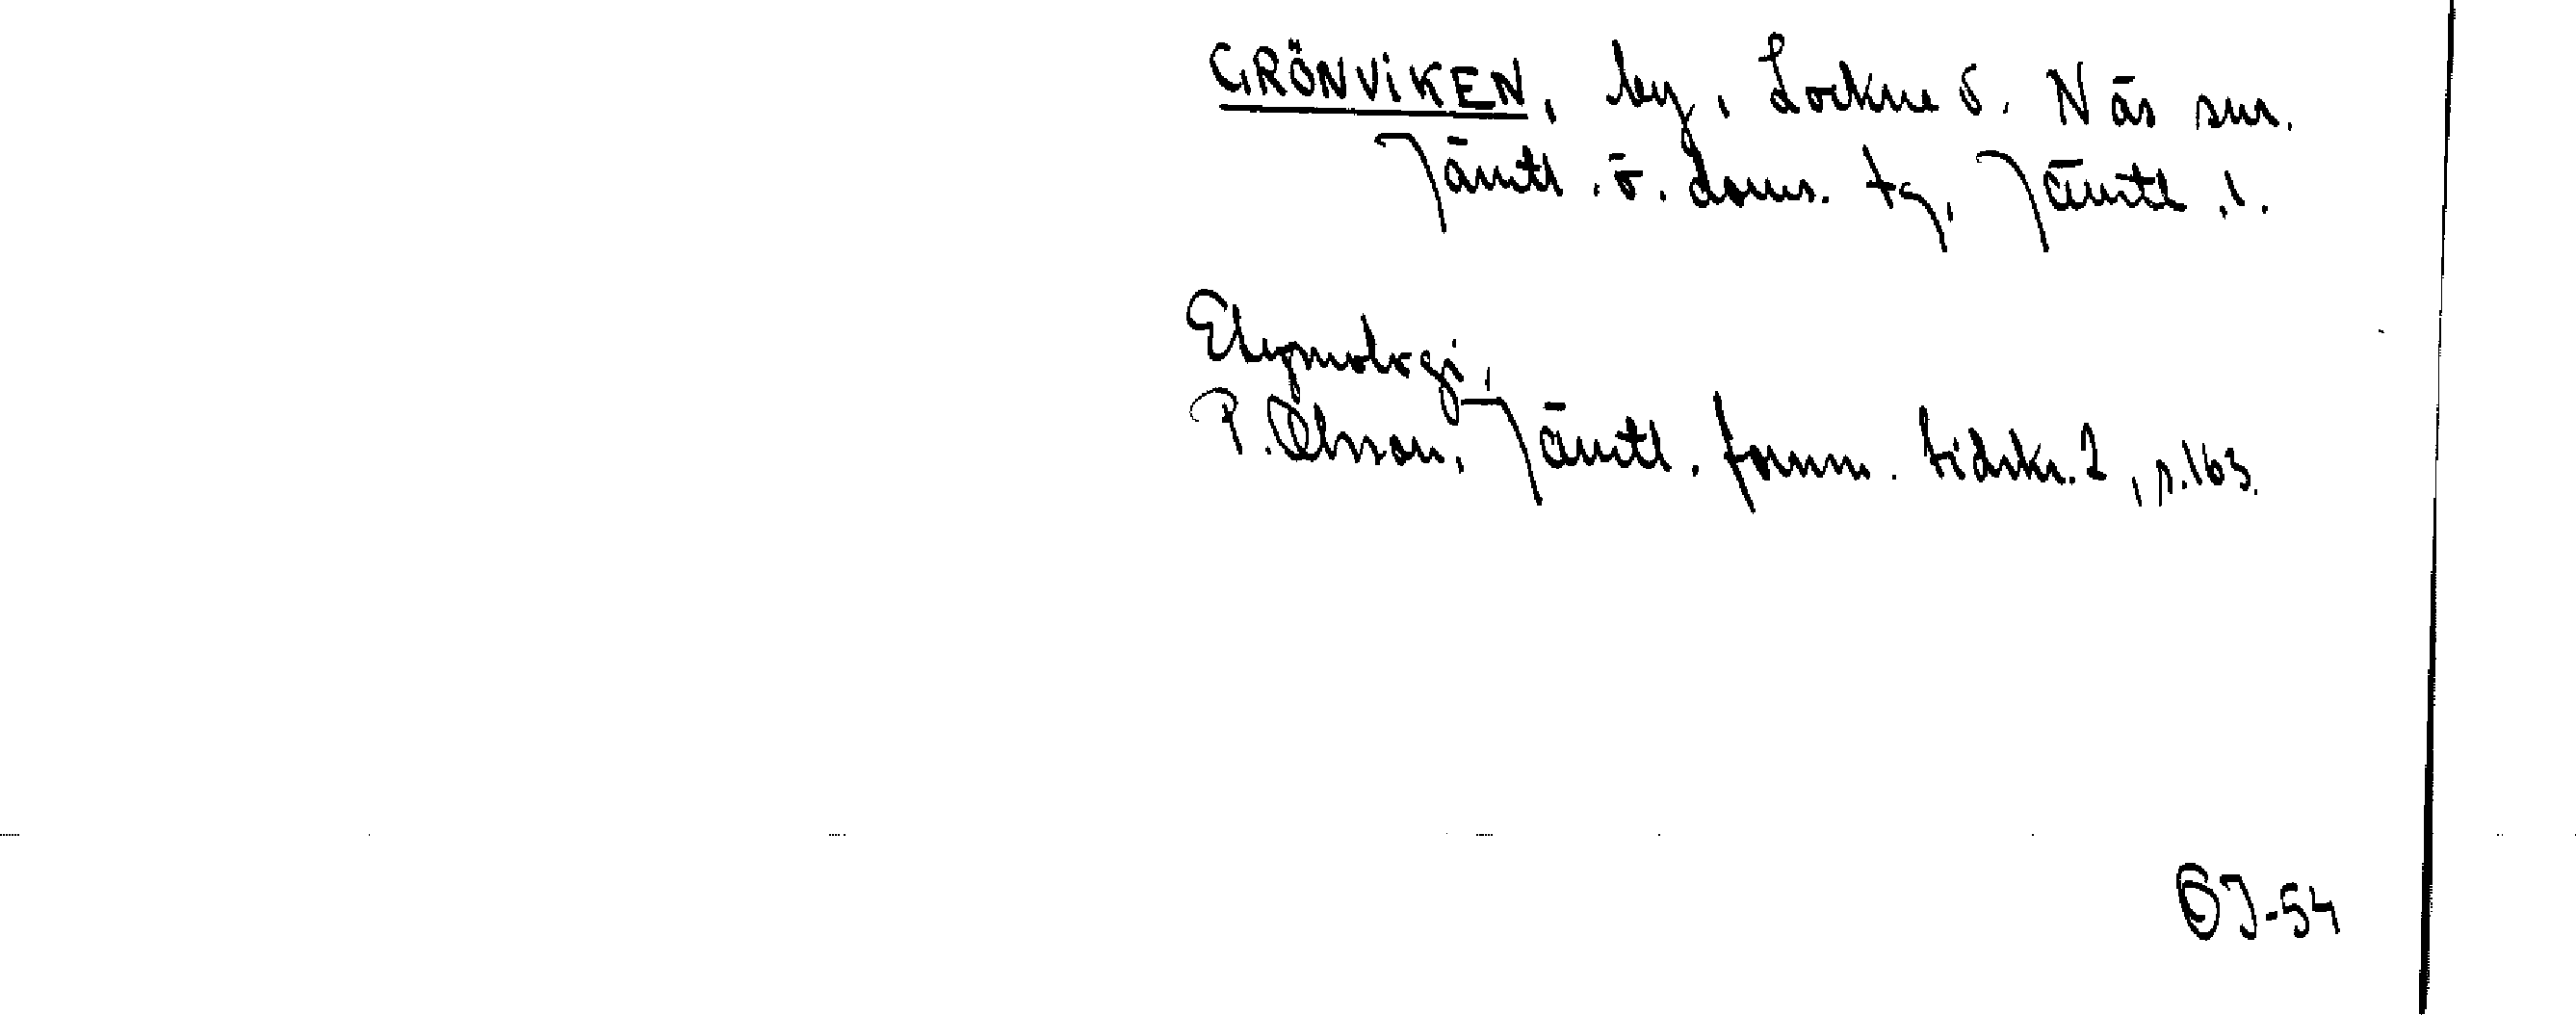 GRÖNViKEN, by, Lockne o. Näs snr.
Jämtl. ö. doms. tg, Jämtl. l.
Etymologi,
P. Olsson, Jämtl. fornm. tidskr. 2, s. 163.
ÖJ-54